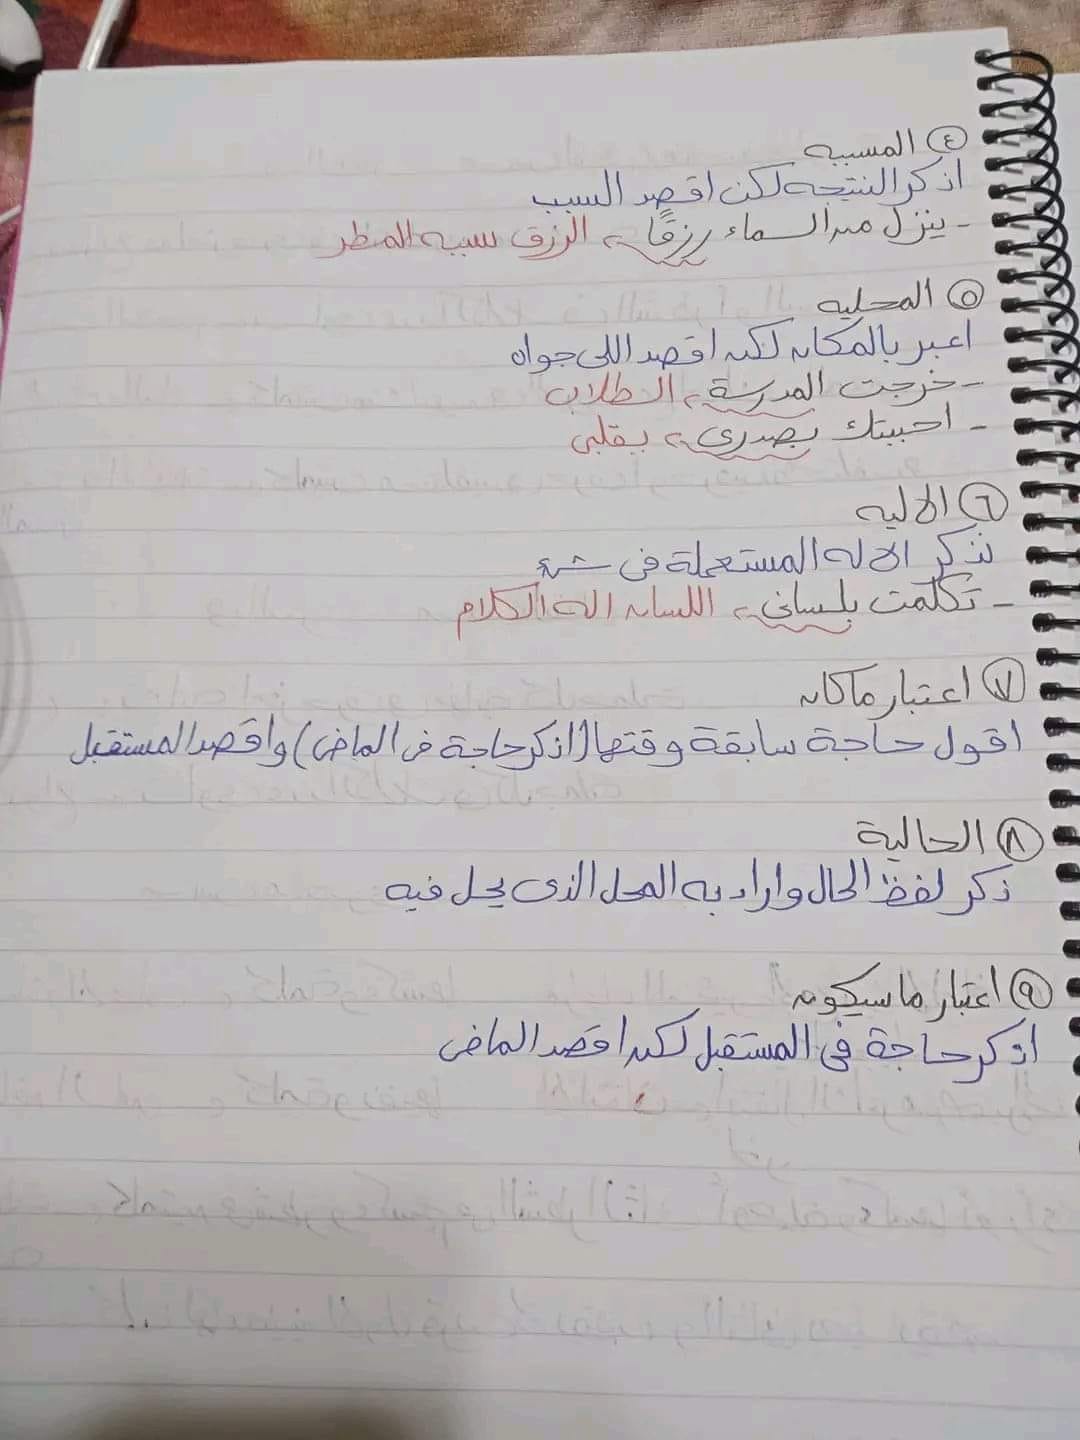 ٤ المسببه
اذكر النتيجه لكن اقصد السبب
- ينزل من السماء رزقًا، الرزق سببه المطر
٥ المحليه
اعبر بالمكان لكن اقصد اللى جواه
- خرجت المدرسة، الطلاب
- احببتك بصدرى، بقلبى
٦ الاليه
نذكر الاله المستعملة فى شئ
- تكلمت بلسانى، اللسان اله الكلام
٧ اعتبار ماكان
اقول حاجة سابقة وقتها (اذكر حاجة فى الماضى) واقصد المستقبل
٨ الحالية
ذكر لفظ الحال واراد به المحل الذى يحل فيه
٩ اعتبار ماسيكون
اذكر حاجة فى المستقبل لكن اقصد الماضى